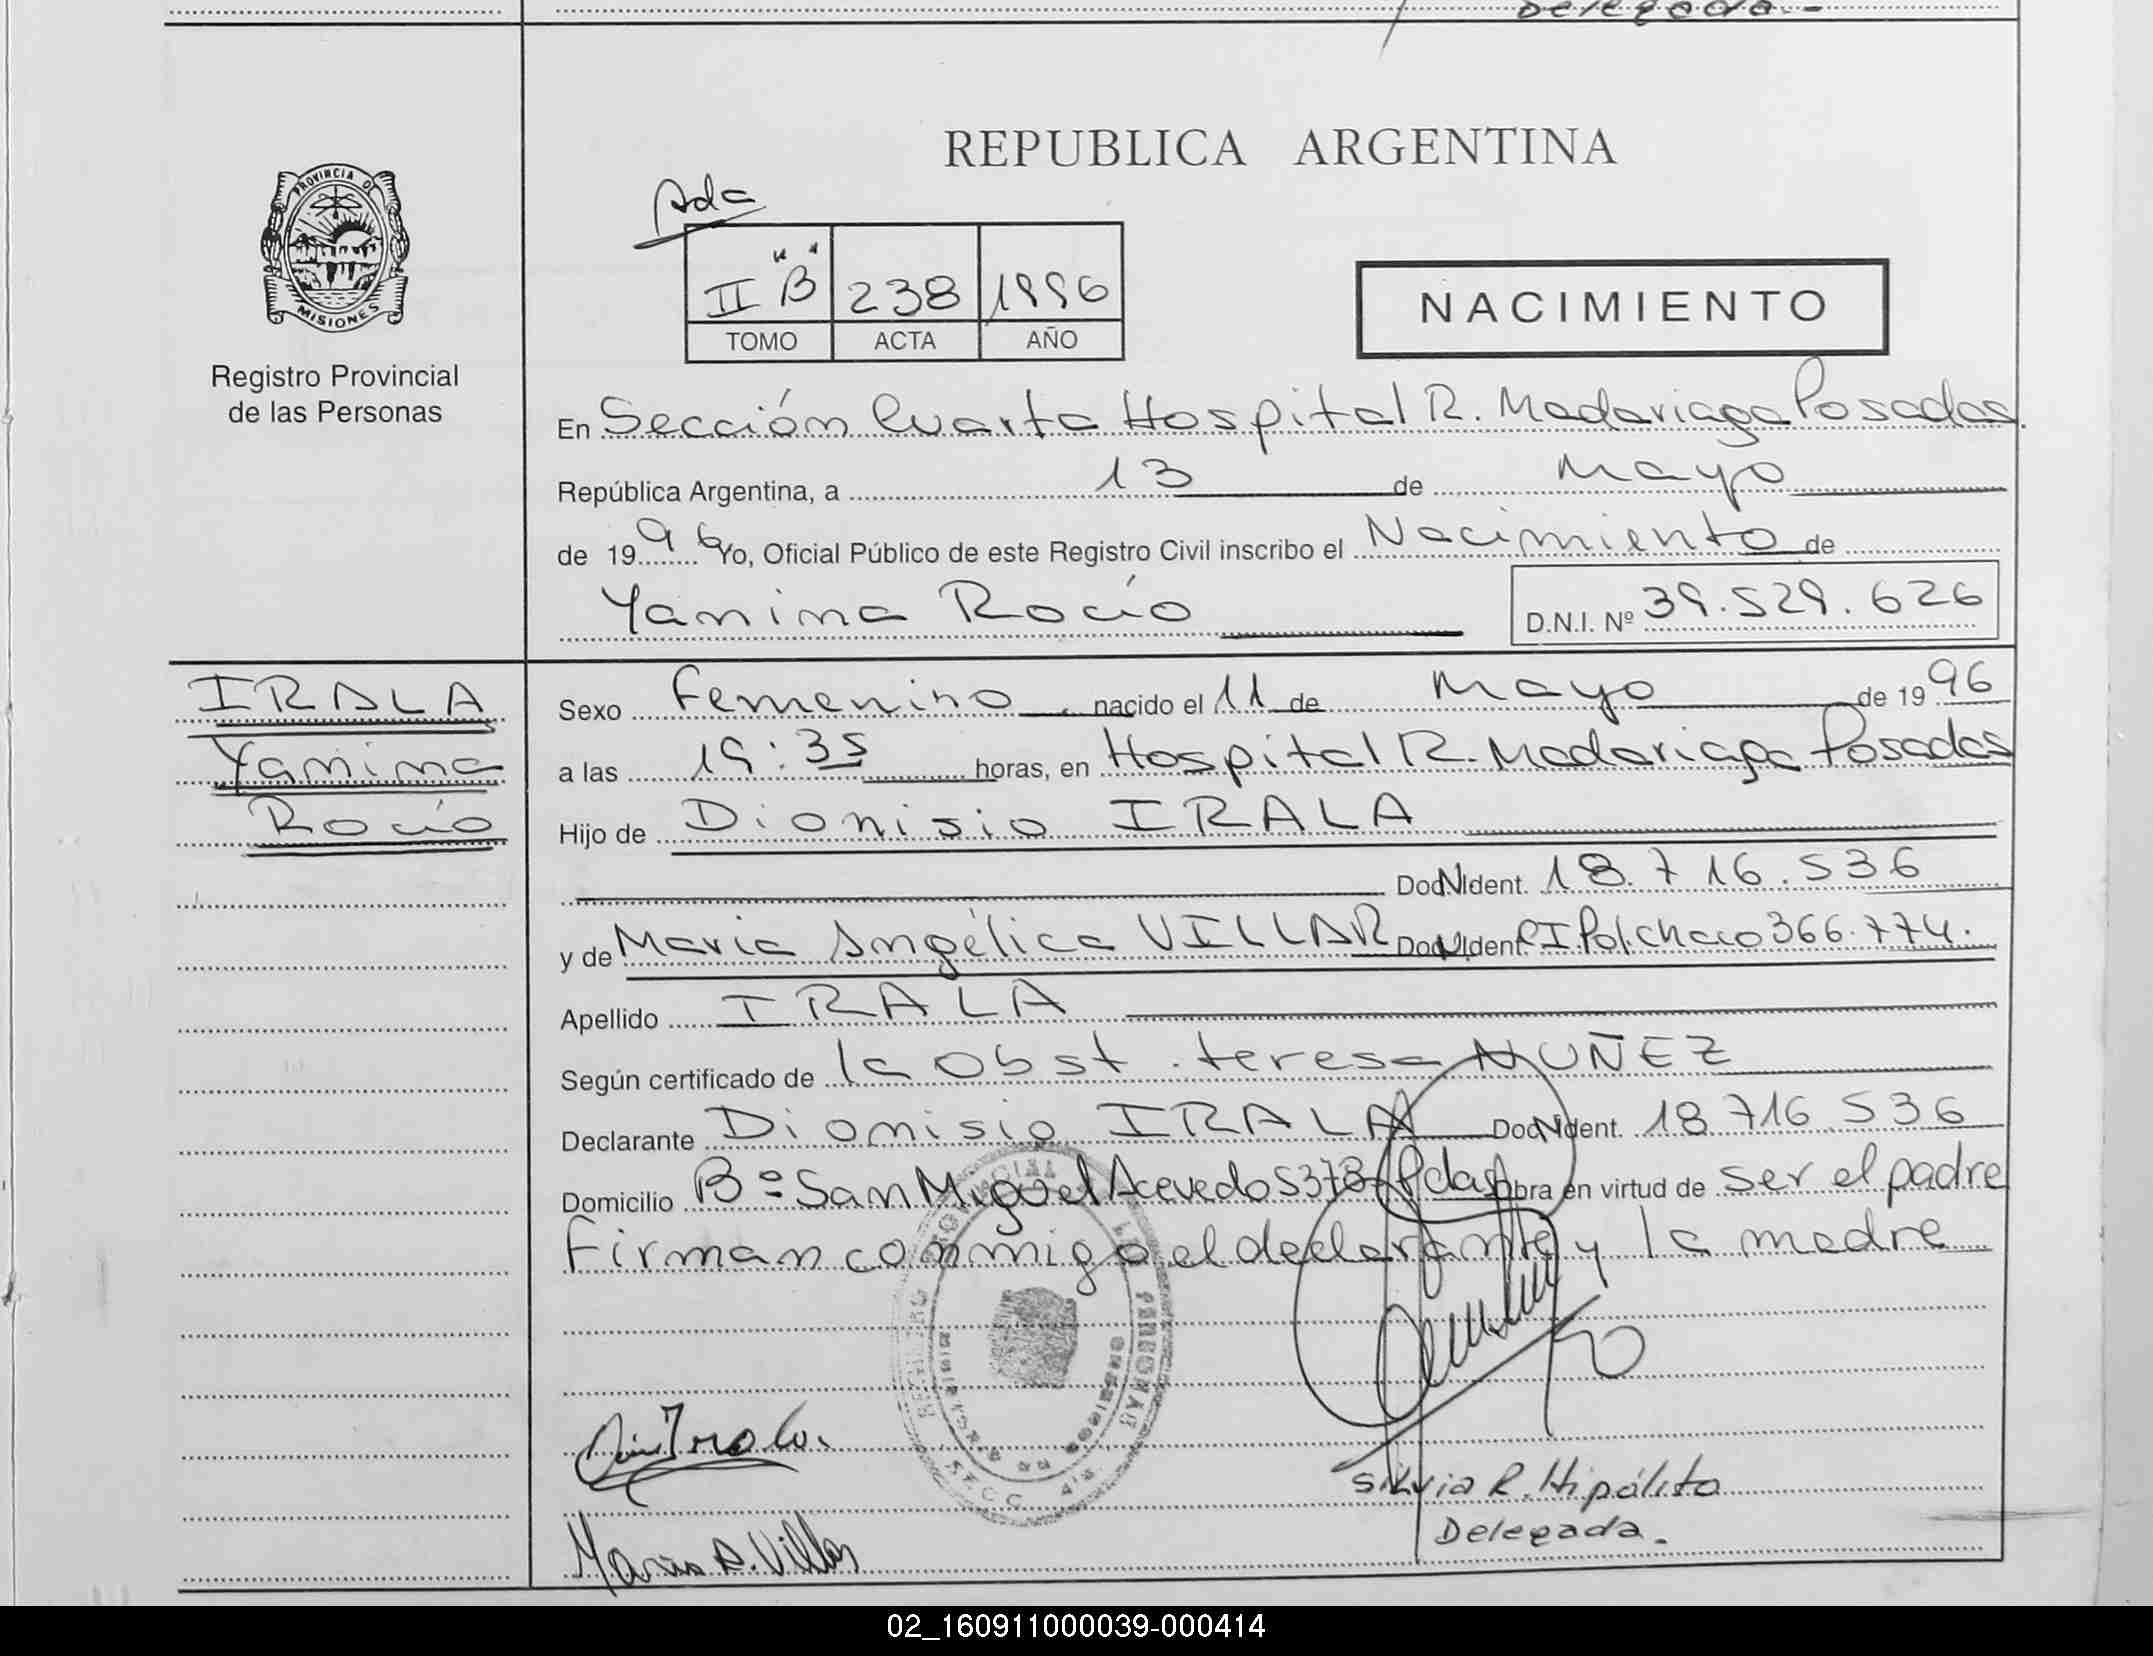 Delegada.-
PROVINCIA DE
MISIONES
Registro Provincial
de las Personas
REPUBLICA ARGENTINA
Ada
II "B" 238 1996
TOMO ACTA AÑO
NACIMIENTO
En Sección Cuarta Hospital R. Madariaga Posadas
República Argentina, a 13 de Mayo
de 1996 Yo, Oficial Público de este Registro Civil inscribo el Nacimiento de
Yanina Rocío D.N.I. Nº 39.529.626
IRALA
Yanina
Rocío
Sexo Femenino, nacido el 11 de Mayo de 1996
a las 19:35 horas, en Hospital R. Madariaga Posadas
Hijo de Dionisio IRALA
Doc. N Ident. 18.716.536
y de Maria Angélica VILLAR Doc. N Ident. CI Pol. Chaco 366.774.
Apellido IRALA
Según certificado de la Obst. teresa NUÑEZ
Declarante Dionisio IRALA Doc. N Ident. 18.716.536
Domicilio Bº San Miguel Acevedo 5378 Pdas Obra en virtud de ser el padre
Firman conmigo el declarante y la madre
SECC. 4ta.
Maria A. Villar
Silvia R. Hipólito
Delegada.-
02_160911000039-000414